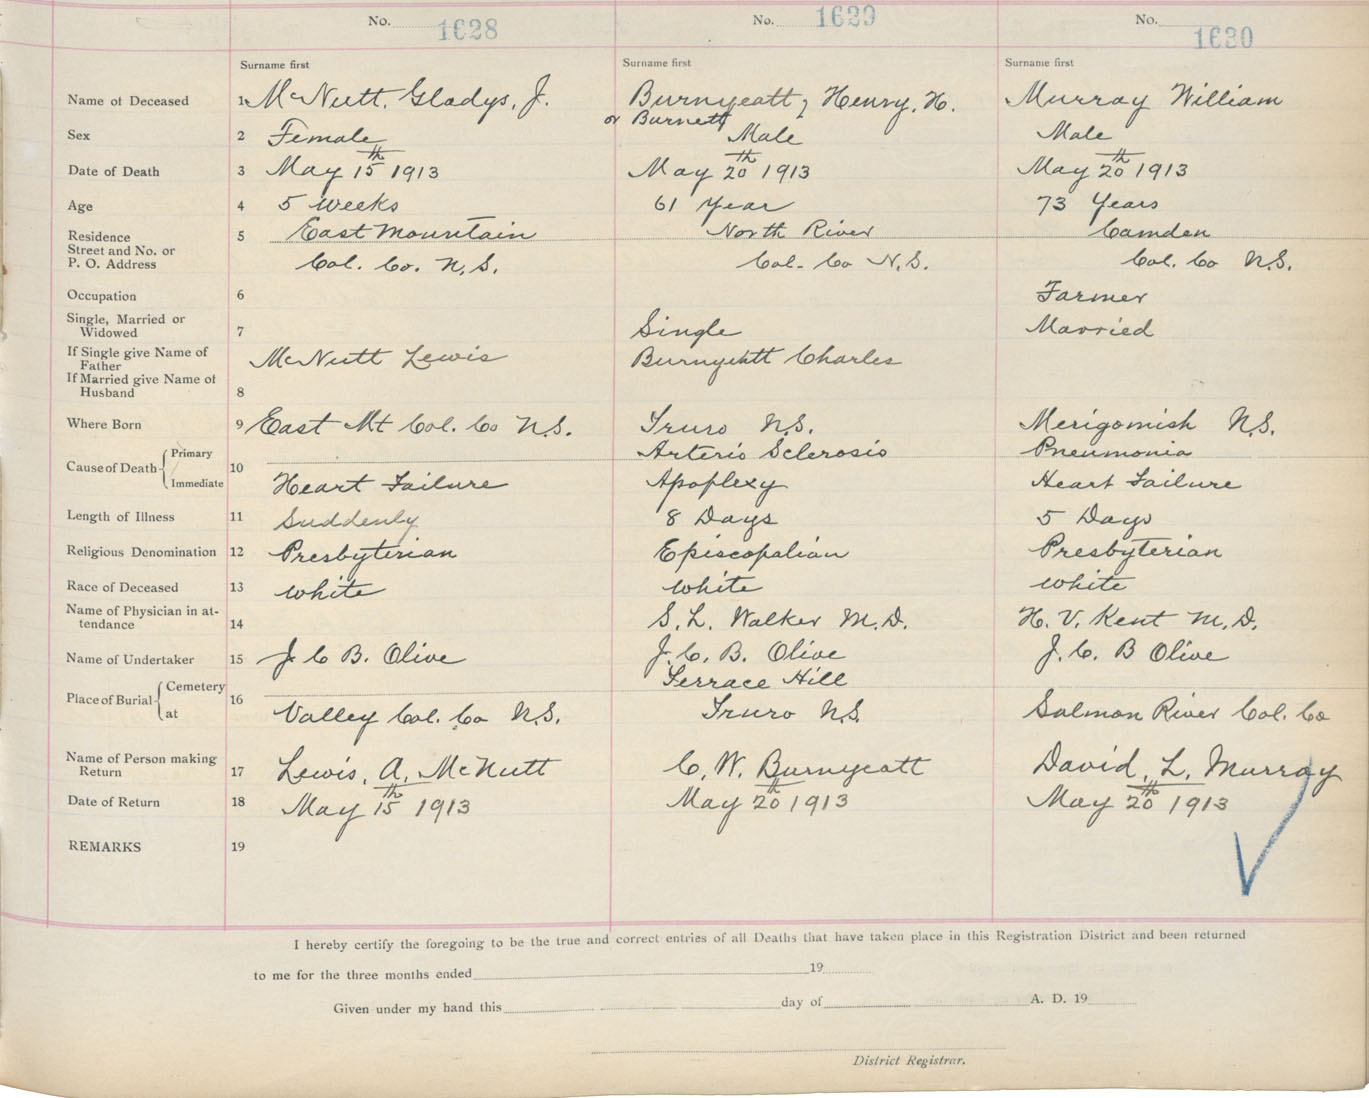 No. 1628 No. 1629 No. 1630
Surname first Surname first Surname first
Name of Deceased 1 McNutt, Gladys, J. Burnyeatt, Henry, H. Murray William
or Burnett
Sex 2 Female Male Male
Date of Death 3 May 15th 1913 May 20th 1913 May 20th 1913
Age 4 5 weeks 61 Year 73 Years
Residence 5 East Mountain North River Camden
Street and No. or
P. O. Address Col. Co. N.S. Col. Co N.S. Col. Co N.S.
Occupation 6 Farmer
Single, Married or
Widowed 7 Single Married
If Single give Name of
Father McNutt Lewis Burnyeatt Charles
If Married give Name of
Husband 8
Where Born 9 East Mt Col. Co N.S. Truro N.S. Merigomish N.S.
Cause of Death Primary 10 Arterio Sclerosis Pneumonia
Immediate Heart Failure Apoplexy Heart Failure
Length of Illness 11 Suddenly 8 Days 5 Days
Religious Denomination 12 Presbyterian Episcopalian Presbyterian
Race of Deceased 13 white white white
Name of Physician in at-
tendance 14 S. L. Walker M.D. H. V. Kent M.D.
Name of Undertaker 15 J C B. Olive J. C. B. Olive J. C. B Olive
Place of Burial Cemetery 16 Terrace Hill
at Valley Col. Co N.S. Truro N.S. Salmon River Col. Co
Name of Person making
Return 17 Lewis, A, McNutt C. W. Burnyeatt David, L, Murray
Date of Return 18 May 15th 1913 May 20th 1913 May 20th 1913
REMARKS 19
I hereby certify the foregoing to be the true and correct entries of all Deaths that have taken place in this Registration District and been returned
to me for the three months ended 19
Given under my hand this day of A. D. 19
District Registrar.